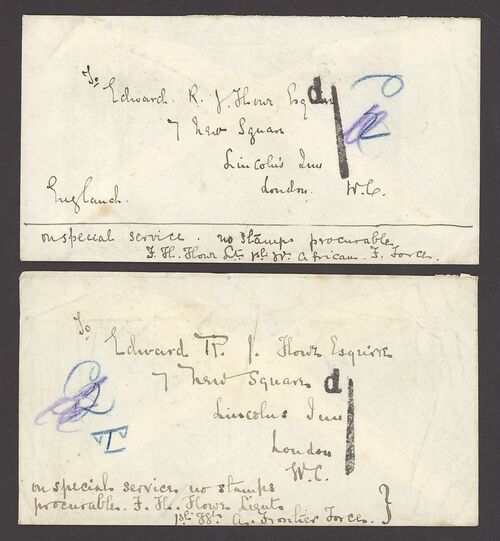 To
Edward. R. J. Howe Esquire
7 New Square
Lincoln's Inn
London. W.C.
England.
d
on special service. no stamps procurable
F. H. Howe Lt. 1st W. African. F. Force.
To
Edward R. J. Howe Esquire
7 New Square
d
Lincolns Inn
London
W.C.
on special service, no stamps
procurable. F. H. Howe Lieut
1st A. Frontier Force.